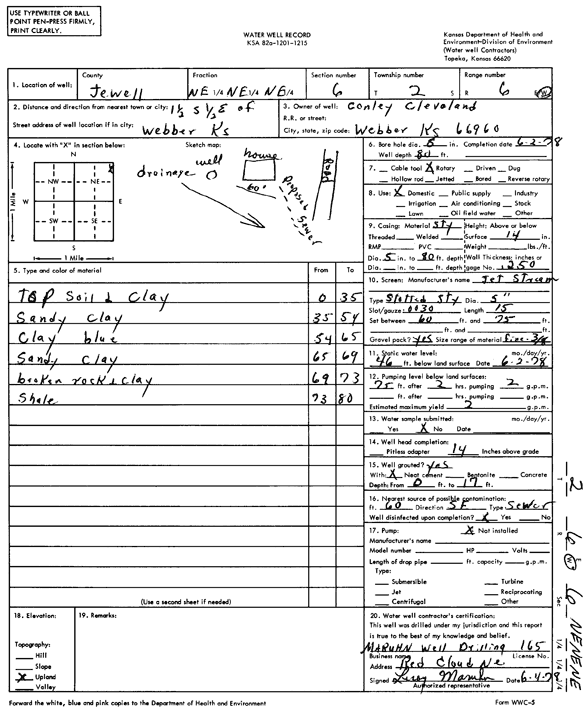 USE TYPEWRITER OR BALL
POINT PEN-PRESS FIRMLY,
PRINT CLEARLY.
WATER WELL RECORD
KSA 82a-1201-1215
Kansas Department of Health and
Environment-Division of Environment
(Water well Contractors)
Topeka, Kansas 66620
1. Location of well: County Jewell Fraction NE 1/4 NE 1/4 NE 1/4 Section number 6 Township number T 2 S Range number R 6 E/W
2. Distance and direction from nearest town or city: 1½ S 1½ E of
Street address of well location if in city: Webber Ks
3. Owner of well: Conley Cleveland
R.R. or street:
City, state, zip code: Webber Ks 66960
4. Locate with "X" in section below:
N
NW NE
W E
SW SE
S
1 Mile
1 Mile
Sketch map:
drainage
well
house
60'
sewer
Road
6. Bore hole dia. 8 in. Completion date 6-2-78
Well depth 80 ft.
7. Cable tool X Rotary Driven Dug
Hollow rod Jetted Bored Reverse rotary
8. Use: X Domestic Public supply Industry
Irrigation Air conditioning Stock
Lawn Oil field water Other
9. Casing: Material Sty Height: Above or below
Threaded Welded Surface 14 in.
RMP PVC Weight lbs./ft.
Dia. 5 in. to 80 ft. depth Wall Thickness: inches or
Dia. in. to ft. depth gage No. .250
10. Screen: Manufacturer's name Jet Stream
Type Slotted Sty Dia. 5"
Slot/gauze: .0030 Length 15
Set between 60 ft. and 75 ft.
ft. and ft.
Gravel pack? yes Size range of material fine-3/8
11. Static water level: mo./day/yr.
46 ft. below land surface Date 6-2-78
12. Pumping level below land surfaces:
75 ft. after 2 hrs. pumping 2 g.p.m.
ft. after hrs. pumping g.p.m.
Estimated maximum yield 2 g.p.m.
13. Water sample submitted: mo./day/yr.
Yes X No Date
14. Well head completion:
Pitless adapter 14 Inches above grade
15. Well grouted? yes
With: X Neat cement Bentonite Concrete
Depth: From 0 ft. to 17 ft.
16. Nearest source of possible contamination:
ft. 60 Direction SE Type Sewer
Well disinfected upon completion? X Yes No
17. Pump: X Not installed
Manufacturer's name
Model number HP Volts
Length of drop pipe ft. capacity g.p.m.
Type:
Submersible Turbine
Jet Reciprocating
Centrifugal Other
5. Type and color of material From To
Top Soil & Clay 0 35
Sandy Clay 35 54
Clay blue 54 65
Sandy Clay 65 69
broken rock & clay 69 73
Shale 73 80
(Use a second sheet if needed)
18. Elevation:
Topography:
Hill
Slope
X Upland
Valley
19. Remarks:
20. Water well contractor's certification:
This well was drilled under my jurisdiction and this report
is true to the best of my knowledge and belief.
MARUHN Well Drilling 165
Business name License No.
Address Red Cloud Ne
Signed Leroy Maruhn Date 6-4-78
Authorized representative
T 2 R 6 E/W Sec 6 NE NE NE
1/4 1/4 1/4
Forward the white, blue and pink copies to the Department of Health and Environment
Form WWC-5